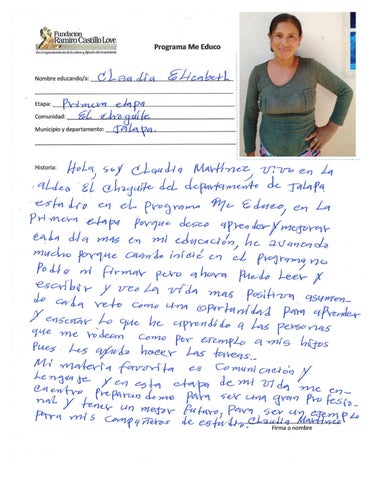 Fundación
Ramiro Castillo Love
Programa Me Educo
Nombre educando/a: Claudia Elizabeth
Etapa: Primera etapa
Comunidad: El chaguite
Municipio y departamento: Jalapa.
Historia: Hola, soy Claudia Martinez vivo en la
aldea El chaguite del departamento de Jalapa
estudio en el programa Me Educo, en la
primera etapa porque deseo aprender y mejorar
cada día mas en mi educación, he avanzado
mucho porque cuando inicié en el programa, no
Podia ni firmar pero ahora puedo Leer y
escribir y veo La vida mas positiva asumien-
do cada reto como una oportunidad para aprender
y enseñar Lo que he aprendido a Las personas
que me rodean como por ejemplo a mis hijos
pues Les ayudo hacer Las tareas.
Mi materia favorita es Comunicación y
Lenguaje y en esta etapa de mi vida me en-
cuentro preparandome para ser una gran profesio-
nal y tener un mejor futuro, para ser un ejemplo
para mis compañeros de estudio. Claudia Martinez
Firma o nombre